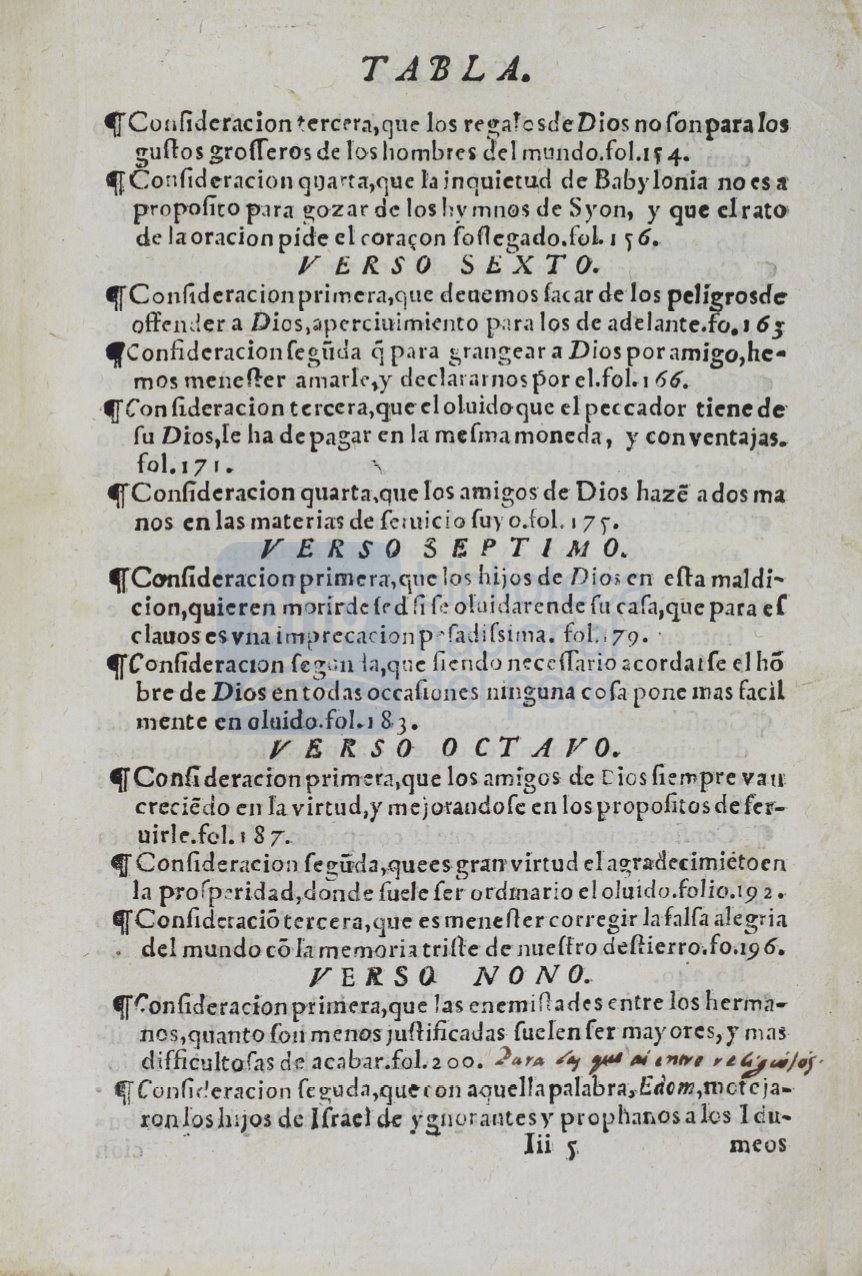 TABLA.
¶Consideracion tercera,que los regalos de Dios no son para los
gustos grosseros de los hombres del mundo.fol.154.
¶Consideracion quarta,que la inquietud de Babylonia no es a
proposito para gozar de los hymnos de Syon, y que el rato
de la oracion pide el coraçon sossegado.fol.156.
VERSO SEXTO.
¶Consideracion primera,que deuemos sacar de los peligros de
offender a Dios,aperciuimiento para los de adelante.fo.163
¶Consideracion segũda q̃ para grangear a Dios por amigo,he-
mos menester amarle,y declararnos por el.fol.166.
¶Consideracion tercera,que el oluido que el peccador tiene de
su Dios,se ha de pagar en la mesma moneda, y con ventajas.
fol.171.
¶Consideracion quarta,que los amigos de Dios hazẽ a dos ma
nos en las materias de seruicio suyo.fol.175.
VERSO SEPTIMO.
¶Consideracion primera,que los hijos de Dios en esta maldi-
cion,quieren morir de sed si se oluidaren de su casa,que para es
clauos es vna imprecacion pesadissima. fol.179.
¶Consideracion segunda,que siendo necessario acordarse el hõ
bre de Dios en todas occasiones ninguna cosa pone mas facil
mente en oluido.fol.183.
VERSO OCTAVO.
¶Consideracion primera,que los amigos de Dios siempre van
creciẽdo en la virtud,y mejorandose en los propositos de ser-
uirle.fol.187.
¶Consideracion segũda,que es gran virtud el agradecimiẽto en
la prosperidad,donde suele ser ordinario el oluido.folio.192.
¶Consideraciõ tercera,que es menester corregir la falsa alegria
del mundo cõ la memoria triste de nuestro destierro.fo.196.
VERSO NONO.
¶Consideracion primera,que las enemistades entre los herma-
nos,quanto son menos justificadas suelen ser mayores,y mas
difficultosas de acabar.fol.200. Para las que ai entre religiosos.
¶Consideracion seguda,que con aquella palabra,Edom,moteja-
ron los hijos de Israel de ygnorantes y prophanos a los Idu-
Iii 5 meos